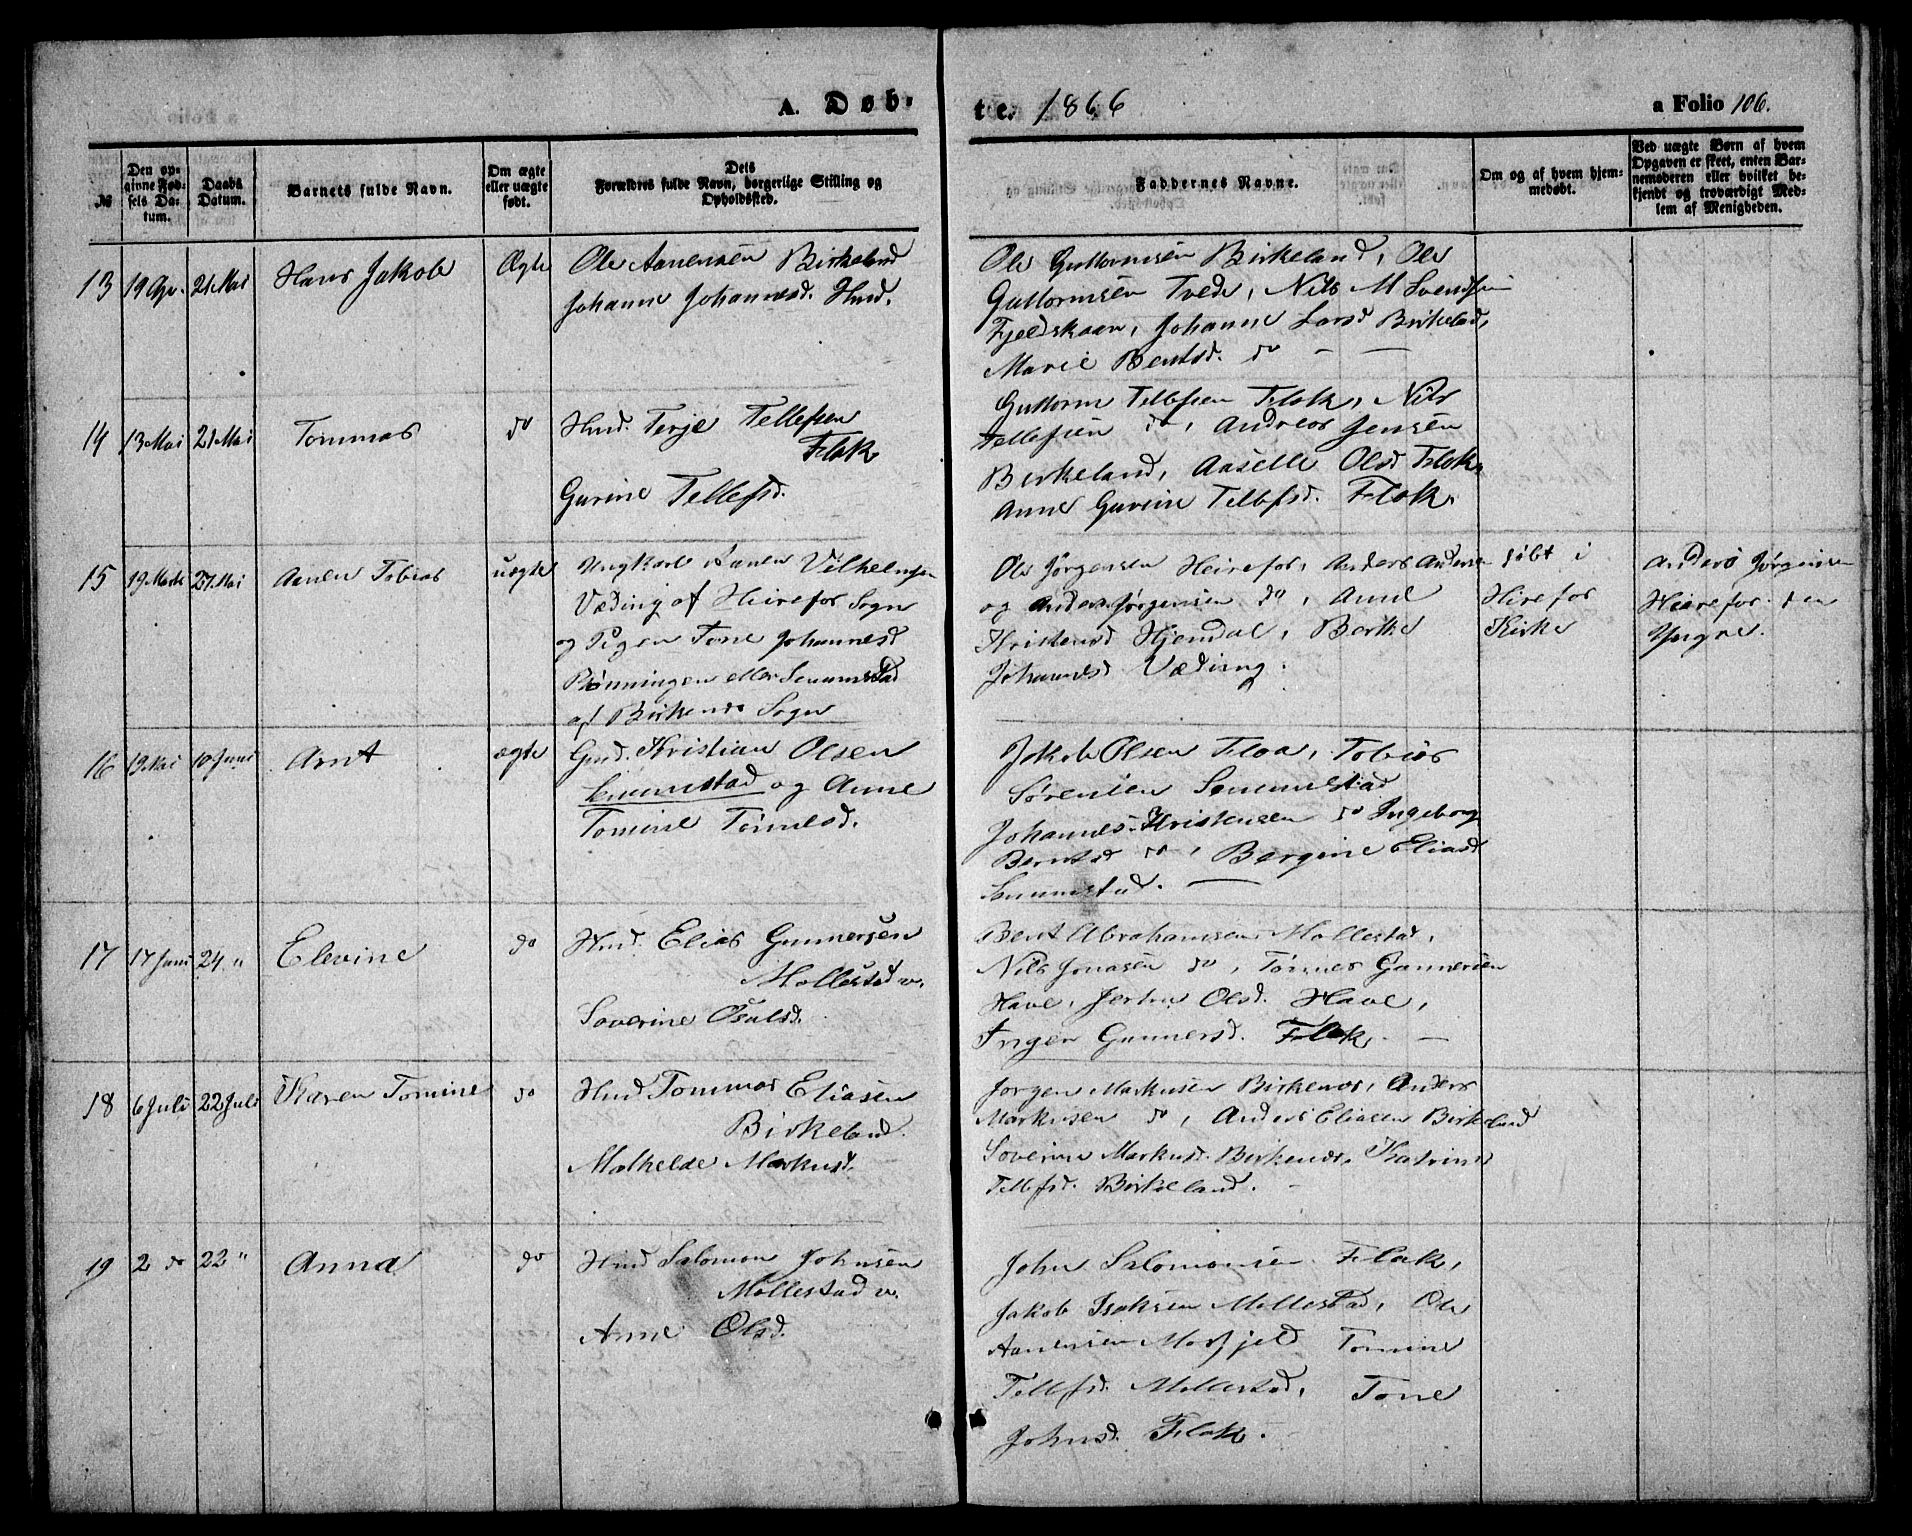 A. Døb-
te. 1866
a Folio 106.
№
Den op-
givne Fød-
sels Da-
tum.
Daabs
Datum.
Barnets fulde Navn.
Om ægte
eller uægte
født.
Dets
Forældres fulde Navn, borgerlige Stilling og
Opholdssted.
Faddernes Navne.
Om og af hvem hjem-
medøbt.
Ved uægte Børn af hvem
Opgaven er skeet, enten Bar-
nemoderen eller hvilket be-
kjendt og troværdigt Med-
lem af Menigheden.
13 19 Apr. 21 Mai Hans Jakob Ægte
Ole Aanensen Birkeland
Johanne Johannesd. Hmd.
Ole Guttormsen Birkeland, Ole
Guttormsen Tvede, Nils M Svendsen
Fjeldskaar, Johanne Larsd Birkeland,
Marie Bentsd. do
14 13 Mai 21 Mai Tommas do
Hmd. Terje Tellefsen
Flak
Gurine Tellefsd.
Guttorm Tellefsen Flak, Nils
Tellefsen do, Andreas Jensen
Birkeland, Aaselle Olsd Flak
Anne Gurine Tellefsd. Flak.
15 19 Marts 27 Mai Aanen Tobias uægte
Ungkarl Aanen Vilhelmsen
Væding af Heirefos Sogn
og Pigen Tone Johannesd
Rønningen eller Senumstad
af Birkenes Sogn
Ole Jørgensen Heirefos, Anders Andersen
og Anders Jørgensen do, Anne
Kristensd Hjendal, Berthe
Johannesd Væding.
døbt i
Hirefos
Kirke
Anders Jørgensen
Heirefos den
Yngre.
16 19 Mai 10 Juni Arnt ægte
Gmd. Kristian Olsen
Senumstad og Anne
Tomine Tønnesd.
Jakob Olsen Floa, Tobias
Sørensen Senumstad
Johannes Kristensen do Ingeborg
Berntsd do, Bergine Eliasd
Senumstad.
17 17 Juni 24 " Elevine do
Hmd. Elias Gunnersen
Mollestad v.
Soverine Osulsd.
Bent Abrahamsen Mollestad,
Nils Jonasen do, Tønnes Gunnersen
Have, Jertru Olsd. Have,
Inger Gunnersd. Flak.
18 6 Juli 22 Juli Karen Tomine do
Hmd Tommas Eliasen
Birkeland.
Mathelde Markusd.
Jørgen Markusen Birkenes, Anders
Markusen do, Anders Eliasen Birkeland
Soverine Markusd. Birkenes, Katrine
Tellefsd. Birkeland.
19 2 do 22 " Anna do
Hmd Salomon Johnsen
Mollestad v.
Anne Olsd.
John Salomonsen Flak,
Jakob Isaksen Mollestad, Ole
Aanensen Mosfjeld Tomine
Tellefsd. Mollestad, Tone
Johnsd. Flak.